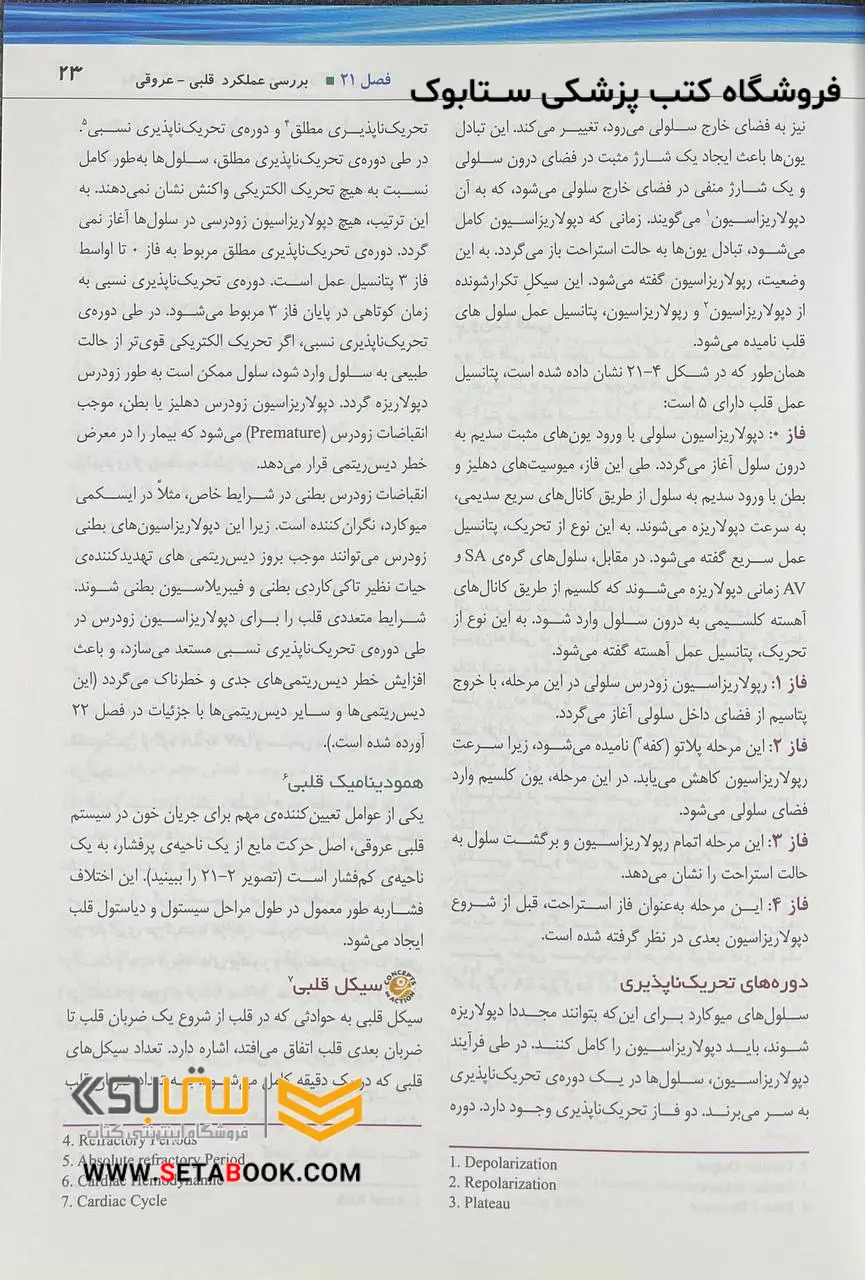 فروشگاه کتب پزشکی ستابوک
فصل ۲۱ ■ بررسی عملکرد قلبی - عروقی
۲۳
نیز به فضای خارج سلولی می‌رود، تغییر می‌کند. این تبادل
یون‌ها باعث ایجاد یک شارژ مثبت در فضای درون سلولی
و یک شارژ منفی در فضای خارج سلولی می‌شود، که به آن
دپولاریزاسیون۱ می‌گویند. زمانی که دپولاریزاسیون کامل
می‌شود، تبادل یون‌ها به حالت استراحت باز می‌گردد. به این
وضعیت، رپولاریزاسیون گفته می‌شود. این سیکلِ تکرارشونده
از دپولاریزاسیون۲ و رپولاریزاسیون، پتانسیل عمل سلول های
قلب نامیده می‌شود.
همان‌طور که در شکل ۴-۲۱ نشان داده شده است، پتانسیل
عمل قلب دارای ۵ است:
فاز ۰: دپولاریزاسیون سلولی با ورود یون‌های مثبت سدیم به
درون سلول آغاز می‌گردد. طی این فاز، میوسیت‌های دهلیز و
بطن با ورود سدیم به سلول از طریق کانال‌های سریع سدیمی،
به سرعت دپولاریزه می‌شوند. به این نوع از تحریک، پتانسیل
عمل سریع گفته می‌شود. در مقابل، سلول‌های گره‌ی SA و
AV زمانی دپولاریزه می‌شوند که کلسیم از طریق کانال‌های
آهسته کلسیمی به درون سلول وارد شود. به این نوع از
تحریک، پتانسیل عمل آهسته گفته می‌شود.
فاز ۱: رپولاریزاسیون زودرس سلولی در این مرحله، با خروج
پتاسیم از فضای داخل سلولی آغاز می‌گردد.
فاز ۲: این مرحله پلاتو (کفه۳) نامیده می‌شود، زیرا سرعت
رپولاریزاسیون کاهش می‌یابد. در این مرحله، یون کلسیم وارد
فضای سلولی می‌شود.
فاز ۳: این مرحله اتمام رپولاریزاسیون و برگشت سلول به
حالت استراحت را نشان می‌دهد.
فاز ۴: این مرحله به‌عنوان فاز استراحت، قبل از شروع
دپولاریزاسیون بعدی در نظر گرفته شده است.
دوره‌های تحریک‌ناپذیری
سلول‌های میوکارد برای این‌که بتوانند مجددا دپولاریزه
شوند، باید دپولاریزاسیون را کامل کنند. در طی فرآیند
دپولاریزاسیون، سلول‌ها در یک دوره‌ی تحریک‌ناپذیری
به سر می‌برند. دو فاز تحریک‌ناپذیری وجود دارد. دوره
1. Depolarization
2. Repolarization
3. Plateau
تحریک‌ناپذیری مطلق۴ و دوره‌ی تحریک‌ناپذیری نسبی۵.
در طی دوره‌ی تحریک‌ناپذیری مطلق، سلول‌ها به‌طور کامل
نسبت به هیچ تحریک الکتریکی واکنش نشان نمی‌دهند. به
این ترتیب، هیچ دپولاریزاسیون زودرسی در سلول‌ها آغاز نمی
گردد. دوره‌ی تحریک‌ناپذیری مطلق مربوط به فاز ۰ تا اواسط
فاز ۳ پتانسیل عمل است. دوره‌ی تحریک‌ناپذیری نسبی به
زمان کوتاهی در پایان فاز ۳ مربوط می‌شود. در طی دوره‌ی
تحریک‌ناپذیری نسبی، اگر تحریک الکتریکی قوی‌تر از حالت
طبیعی به سلول وارد شود، سلول ممکن است به طور زودرس
دپولاریزه گردد. دپولاریزاسیون زودرس دهلیز یا بطن، موجب
انقباضات زودرس (Premature) می‌شود که بیمار را در معرض
خطر دیس‌ریتمی قرار می‌دهد.
انقباضات زودرس بطنی در شرایط خاص، مثلاً در ایسکمی
میوکارد، نگران‌کننده است. زیرا این دپولاریزاسیون‌های بطنی
زودرس می‌توانند موجب بروز دیس‌ریتمی های تهدیدکننده‌ی
حیات نظیر تاکی‌کاردی بطنی و فیبریلاسیون بطنی شوند.
شرایط متعددی قلب را برای دپولاریزاسیون زودرس در
طی دوره‌ی تحریک‌ناپذیری نسبی مستعد می‌سازد، و باعث
افزایش خطر دیس‌ریتمی‌های جدی و خطرناک می‌گردد (این
دیس‌ریتمی‌ها و سایر دیس‌ریتمی‌ها با جزئیات در فصل ۲۲
آورده شده است.).
همودینامیک قلبی۶
یکی از عوامل تعیین‌کننده‌ی مهم برای جریان خون در سیستم
قلبی عروقی، اصل حرکت مایع از یک ناحیه‌ی پرفشار، به یک
ناحیه‌ی کم‌فشار است (تصویر ۲-۲۱ را ببینید). این اختلاف
فشاربه طور معمول در طول مراحل سیستول و دیاستول قلب
ایجاد می‌شود.
CONCEPTS in ACTION سیکل قلبی۷
سیکل قلبی به حوادثی که در قلب از شروع یک ضربان قلب تا
ضربان بعدی قلب اتفاق می‌افتد، اشاره دارد. تعداد سیکل‌های
قلبی که در یک دقیقه کامل
ستابوک
فروشگاه اینترنتی کتاب
4. Refractory Periods
5. Absolute refractory Period
6. Cardiac Hemodynamic
7. Cardiac Cycle
WWW.SETABOOK.COM